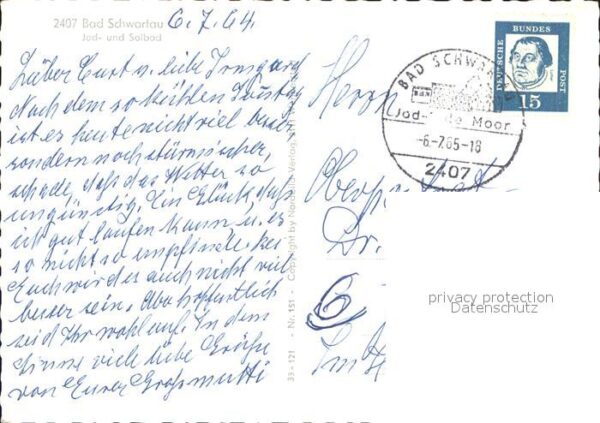 2407 Bad Schwartau 6.7.64.
Jod- und Solbad
Lieber Curt u. liebe Irmgard
Nach dem so kühlen
ist es heute nicht viel besser
sondern noch stürmischer,
schade, daß das Wetter so
ungünstig. Ein Glück, daß
ich gut laufen kann u. es
so nicht so empfinde. Bei
Euch wird es auch nicht viel
besser sein. Aber hoffentlich
seid Ihr wohlauf. In dem
Sinne viele liebe Grüße
von Eurer Großmutti
33 - 121 - Nr. 151 - Copyright by Verlag
Herrn
Dr.
6
BAD SCHWARTAU
Jod- Moor
-6.-7.65-18
2407
DEUTSCHE
BUNDES
POST
15
privacy protection
Datenschutz